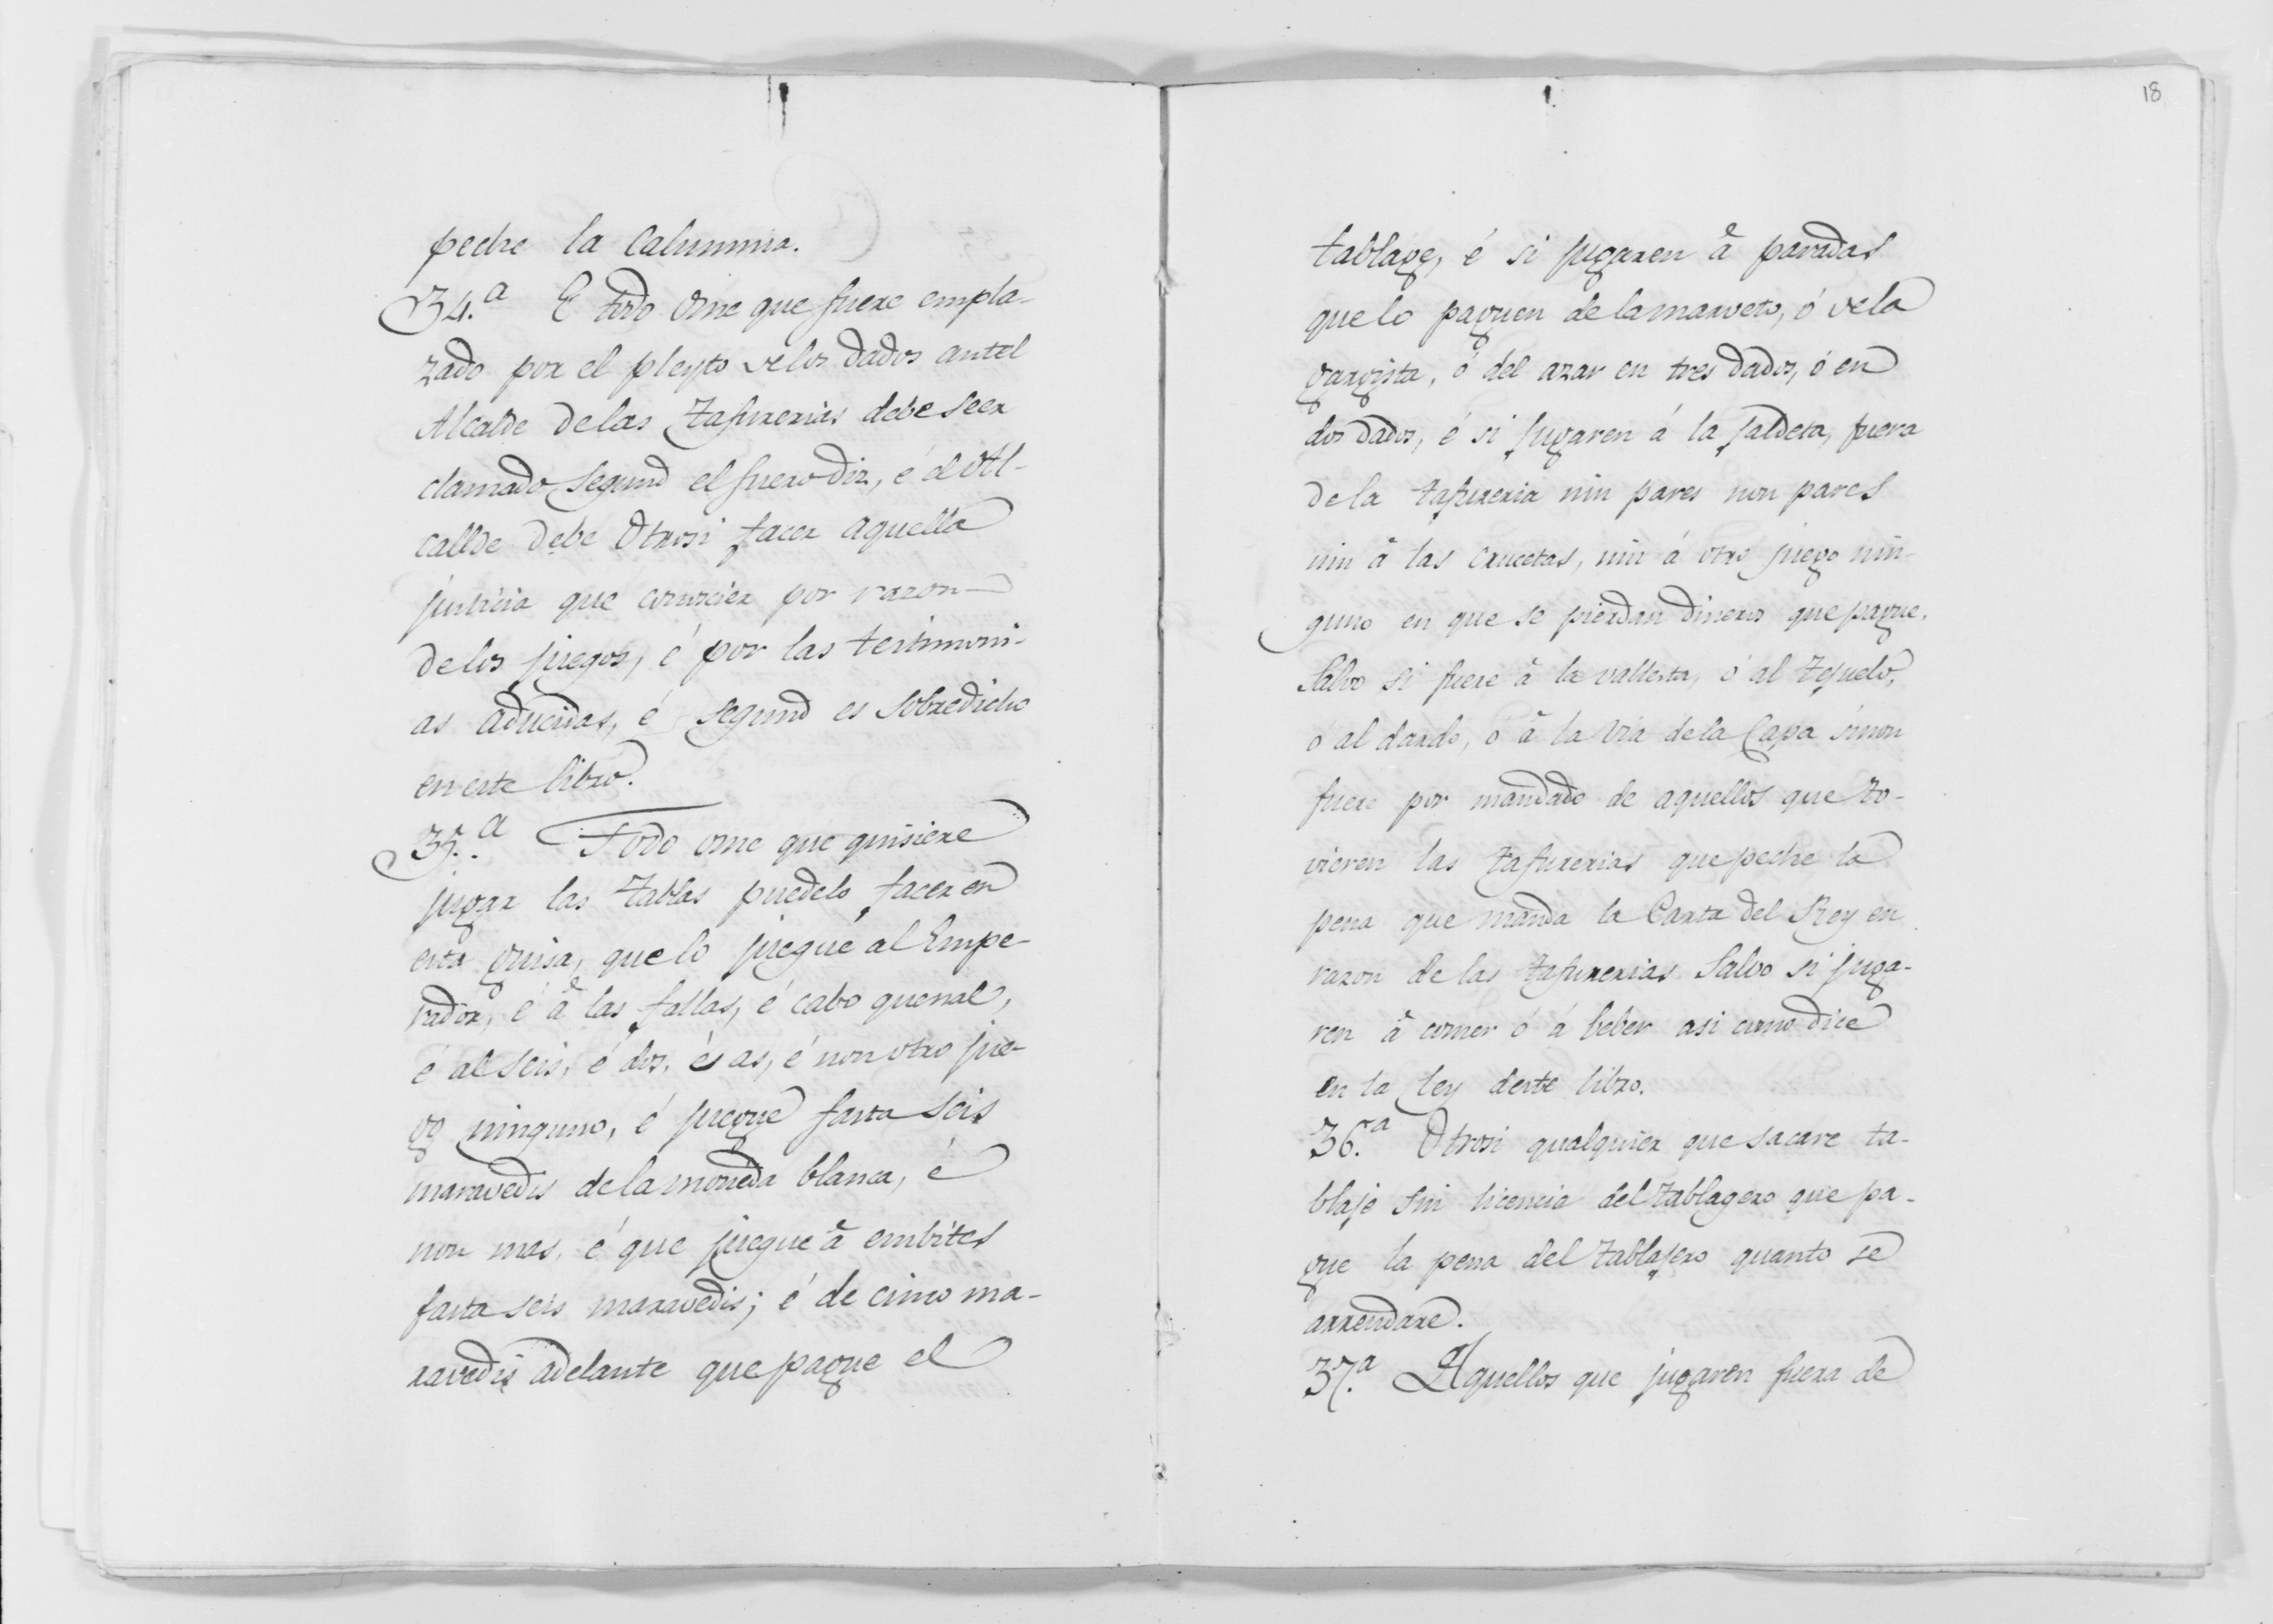 peche la calumnia.
34.ª E todo ome que fuere empla-
zado por el pleyto de los dados antel
Alcalde de las Tafurerias debe seer
clamado segund el fuero diz, é el Al-
callde debe Otrosi facer aquella
justicia que conocier por razon
de los juegos, é por las testimoni-
as aducidas, é segund es sobredicho
en este libro.
35.ª Todo ome que quisiere
jugar las tablas puedelo facer en
esta guisa, que lo juegue al Empe-
rador, é á las fallas, é cabo quenal,
é al seis, é dos, é as, é non otro jue-
go ninguno, é juegue fasta seis
maravedis de la moneda blanca, é
non mas, é que juegue á embites
fasta seis maravedis; é de cinco ma-
ravedis adelante que pague el
18
tablage, é si jugaren á paradas
que lo paguen de la marveto, ó de la
gargista, ó del azar en tres dados, ó en
dos dados, é si jugaren á la faldeta, fuera
de la tafureria nin pares non pares
nin á las crucetas, nin á otro juego nin-
guno en que se pierdan dineros que pague,
Salvo si fuere á la vallesta, ó al Tejuelo,
ó al dardo, ó á la Via de la Capa sinon
fuere por mandado de aquellos que to-
vieren las tafurerias que peche la
pena que manda la Carta del Rey en
razon de las tafurerias Salvo si juga-
ren á comer ó á beber asi como dice
en la Ley deste libro.
36.ª Otrosi qualquier que sacare ta-
blaje sin licencia del tablagero que pa-
gue la pena del tablajero quanto se
arrendare.
37.ª Aquellos que jugaren fuera de